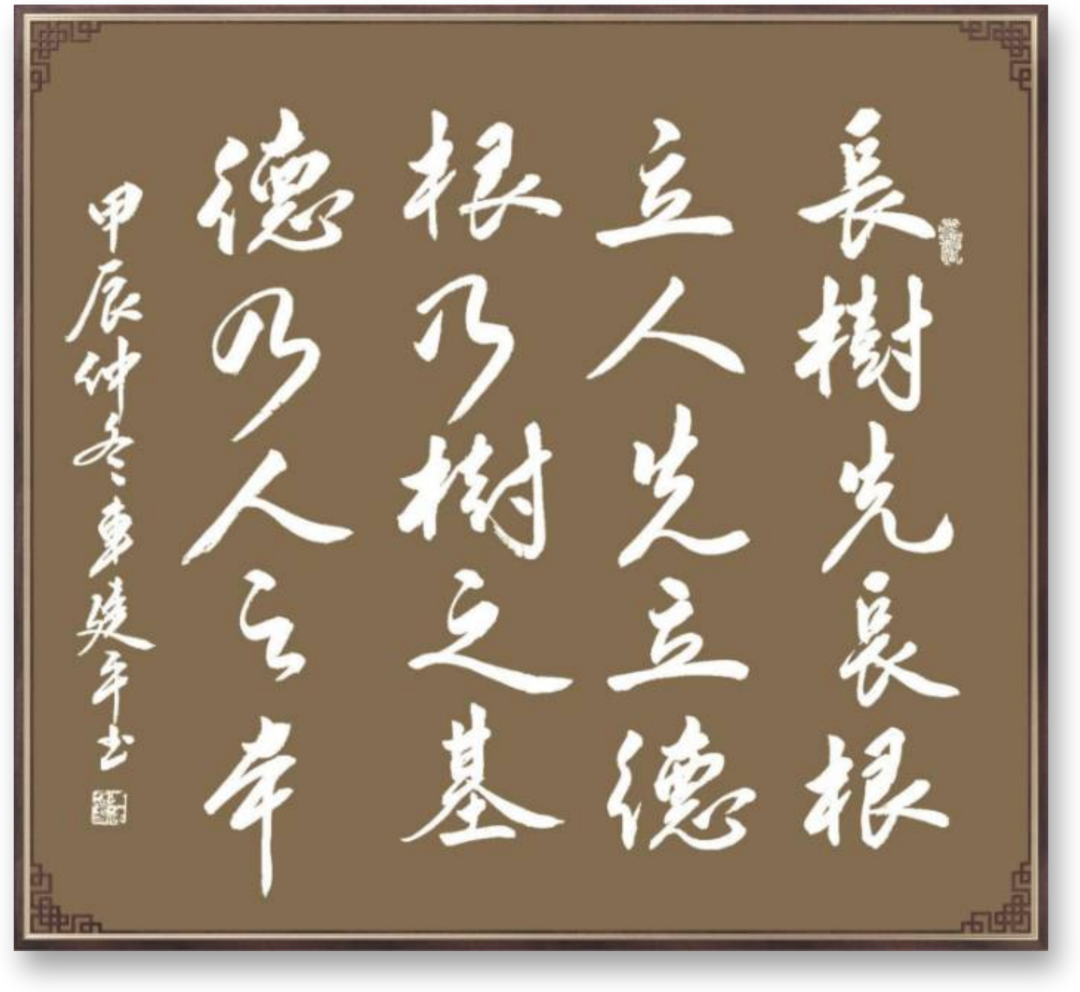 長樹先長根
立人先立德
根乃樹之基
德乃人之本
甲辰仲冬車建平书